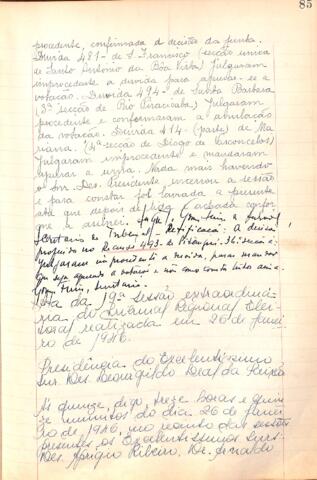 85
procedente, confirmada a decisão da Junta.
Duvida 481 - de S. Francisco (secção unica
de Santo Antonio da Bôa Vista) Julgaram
improcedente a duvida para apurar-se a
votação. Duvida 494 - de Santa Barbara
(3ª secção de Rio Piracicaba) Julgaram
procedente e confirmaram a anulação
da votação. Duvida 414 - (parte) de Ma
riana. (4ª secção de Diogo de Vasconcelos)
Julgaram improcedente e mandaram
apurar a urna. Nada mais havendo
o Snr. Des. Presidente encerrou a sessão
e para constar foi lavrada a presente
ata que depois de lida e achada confor
me a assino.
Secretario do Tribunal - Retificação: A decisão
proferida no Recurso 493 - de Pitangui. 36ª secção:
Julgaram improcedente a duvida, para mandar
que seja apurada a votação e não como consta
Secretario.
Ata da 19ª sessão extraordina
ria do Tribunal Regional Elei-
toral realizada em 26 de Janei
ro de 1946.
Presidência do Excelentissimo
Snr. Des. Leonegildo Leal da Paixão
As quinze, digo, treze horas e quin
ze minutos do dia 26 de Janei
ro de 1946, no recinto das sessões
presentes os Excelentissimos Snrs.
Des. Aprigio Ribeiro, Dr. Arnaldo